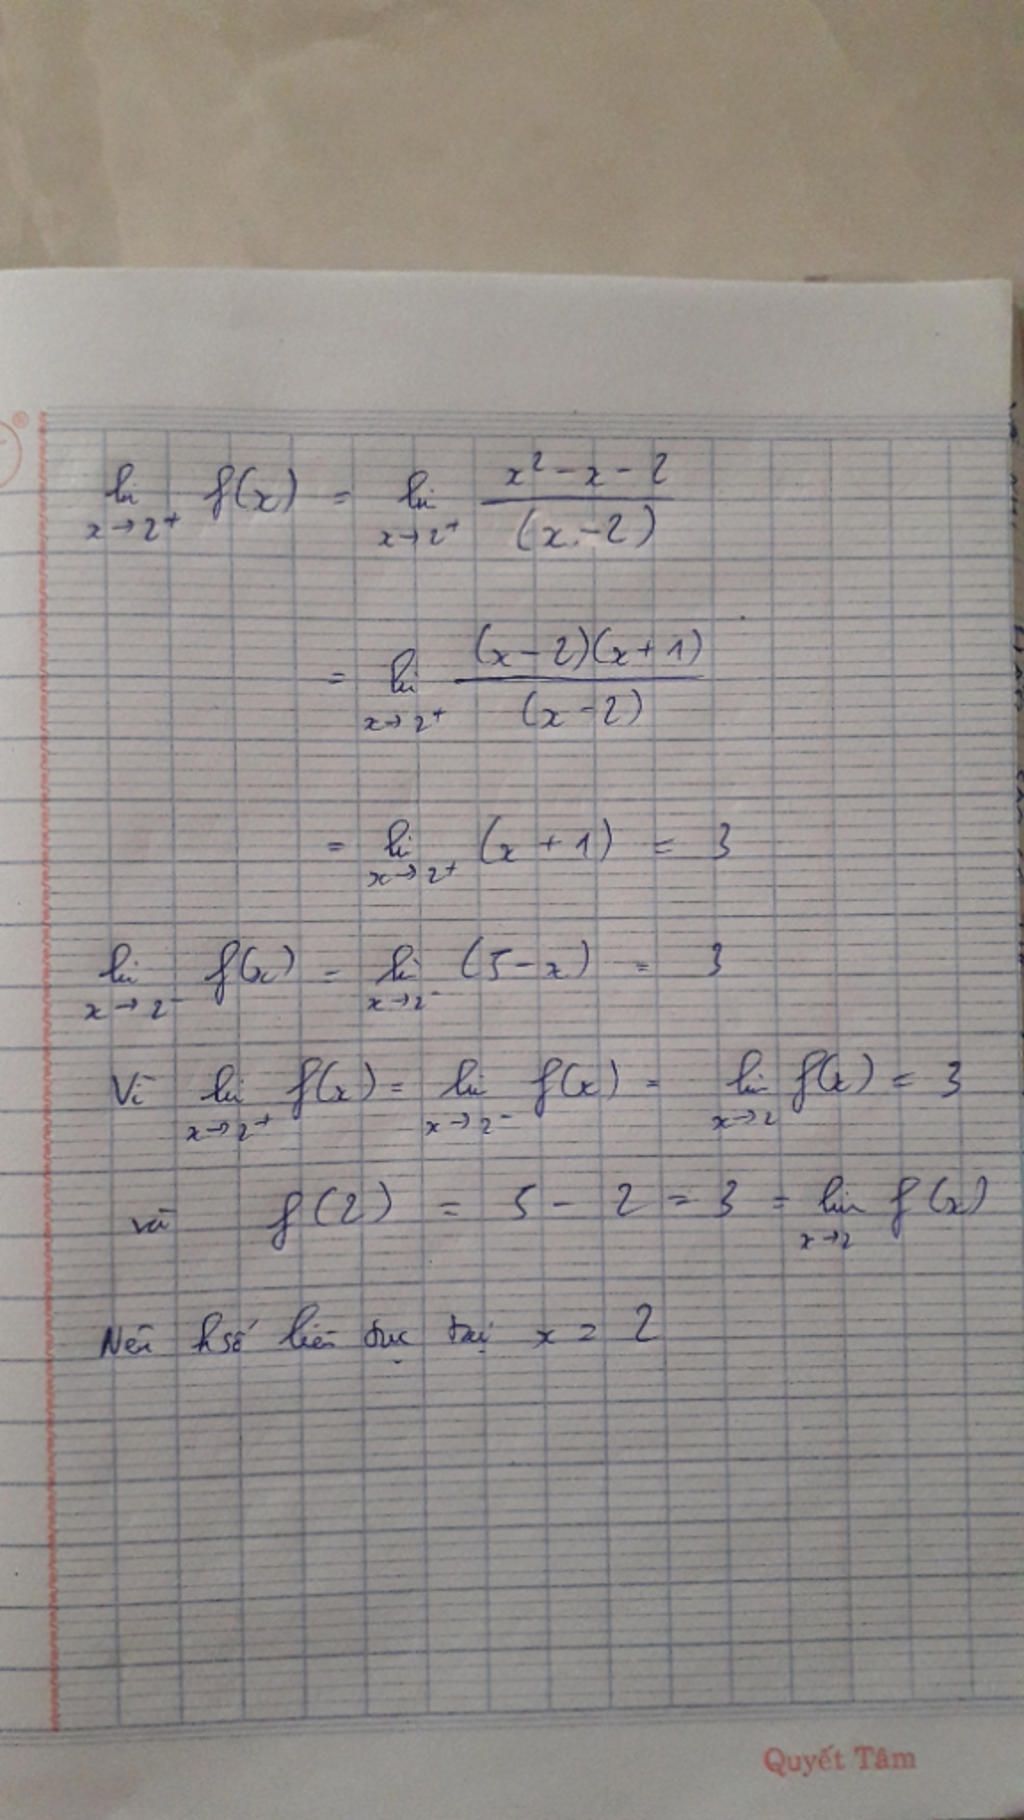 lim x→2⁺ f(x) = lim x→2⁺ (x² - x - 2)/(x - 2)
= lim x→2⁺ (x - 2)(x + 1)/(x - 2)
= lim x→2⁺ (x + 1) = 3
lim x→2⁻ f(x) = lim x→2⁻ (5 - x) = 3
Vì lim x→2⁺ f(x) = lim x→2⁻ f(x) = lim x→2 f(x) = 3
và f(2) = 5 - 2 = 3 = lim x→2 f(x)
Nên h số liên tục tại x = 2
Quyết Tâm